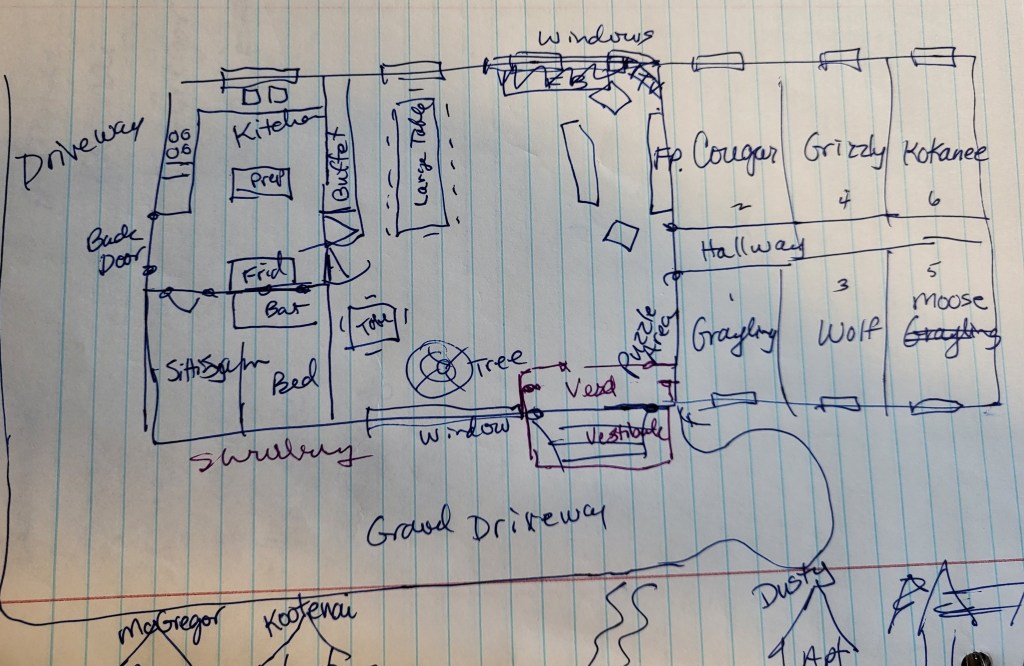 Windows
Driveway
Kitchen
Prep
Buffet
Large Table
Fp.
Cougar
2
Grizzly
4
Kokanee
6
Back
Door
Hallway
Frid
Bar
Table
Tree
Puzzle
Area
1
Grayling
3
Wolf
5
Moose
Grayling
Bed
Window
Vestibule
Driveway
McGregor
Kootenai
Dusty
Apt